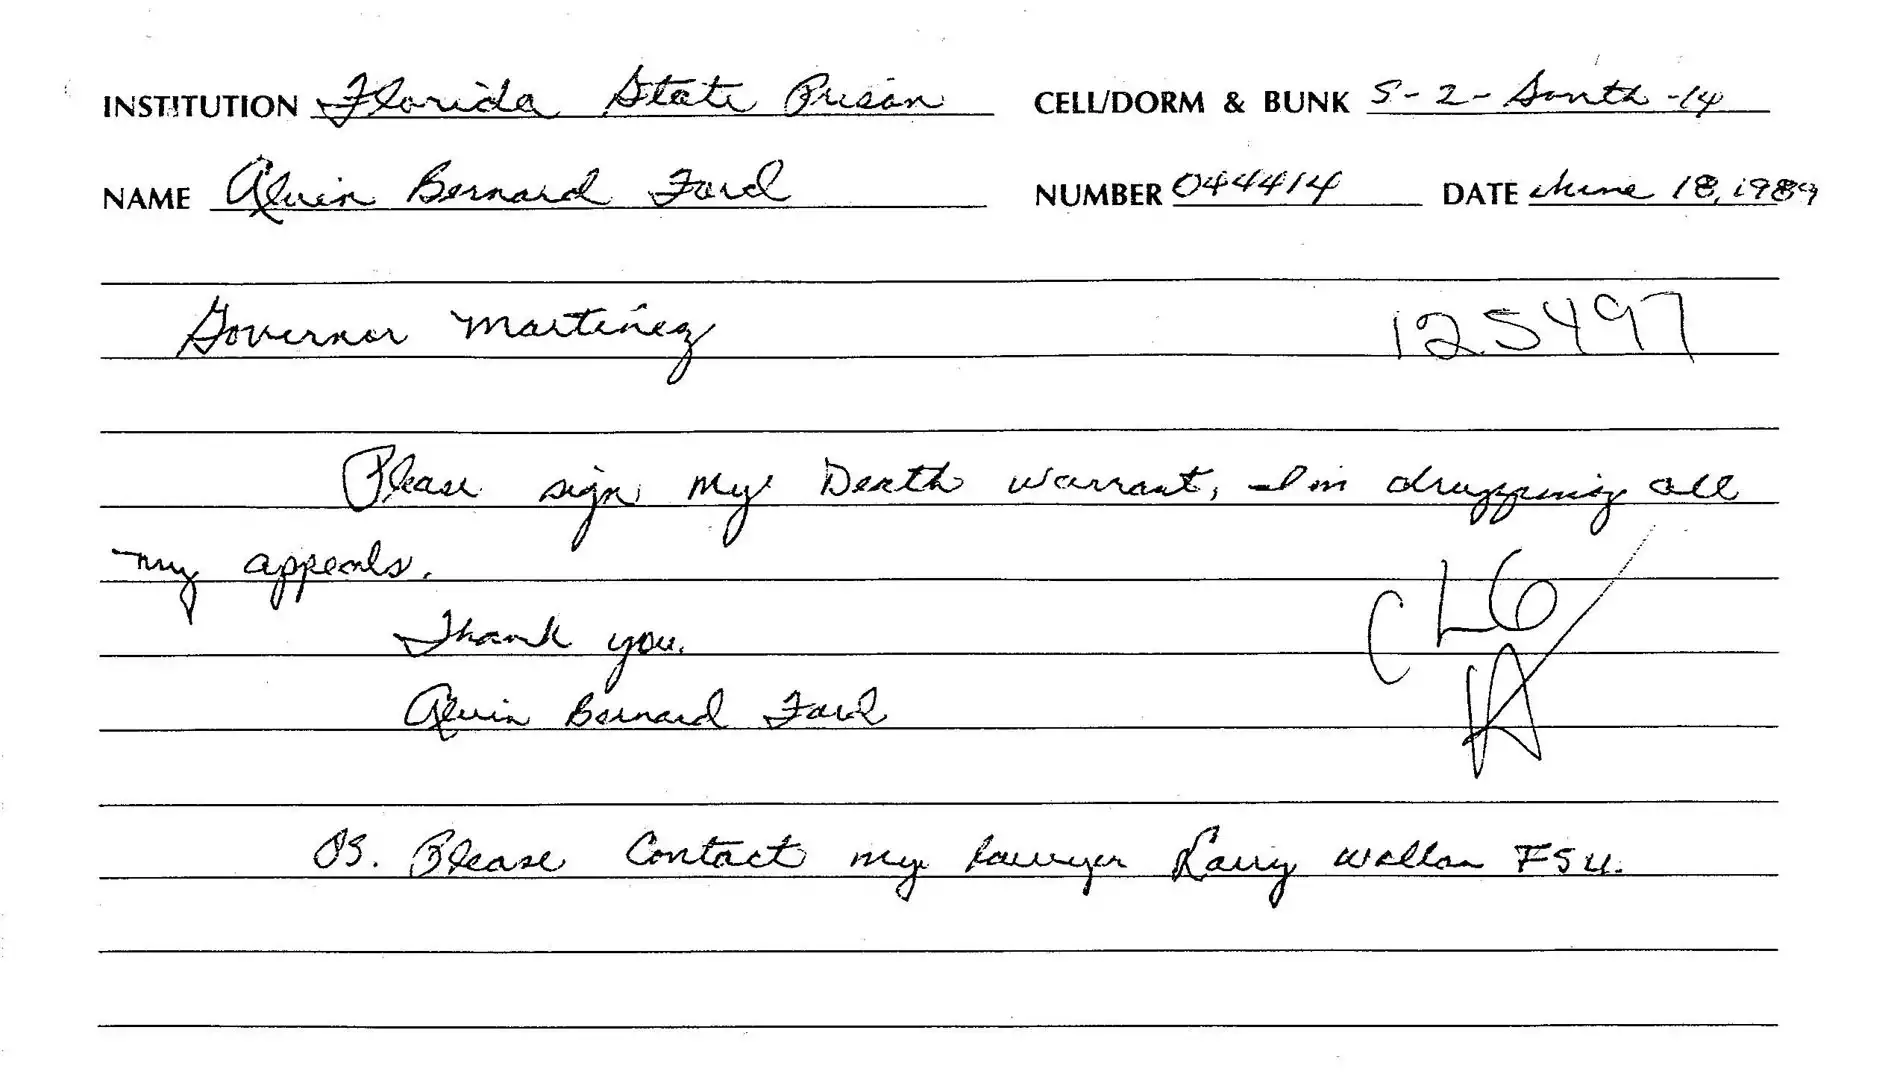 INSTITUTION Florida State Prison CELL/DORM & BUNK S-2-South-14
NAME Alvin Bernard Ford NUMBER 044414 DATE June 18, 1989
Governor Martinez 125497
Please sign my Death warrant, I'm dropping all
my appeals.
CLG
Thank you.
Alvin Bernard Ford
PS. Please Contact my lawyer Larry Wollan FSU.